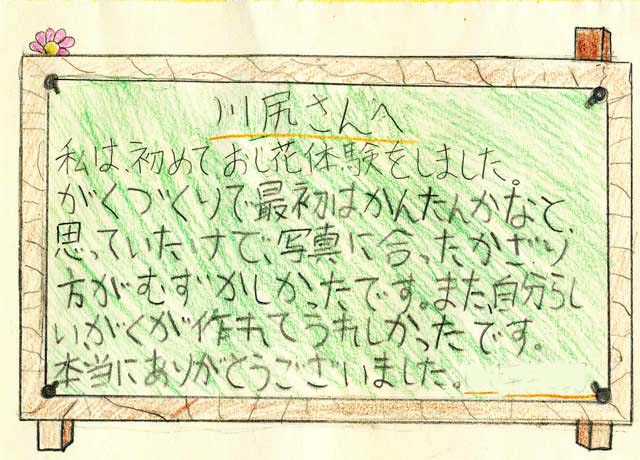 川尻さんへ
私は、初めておし花体験をしました。
がくづくりで最初はかんたんかなと、
思っていたけで、写真に合ったかざり
方がむずかしかったです。また、自分らし
い、がくが作れてうれしかったです。
本当にありがとうございました。